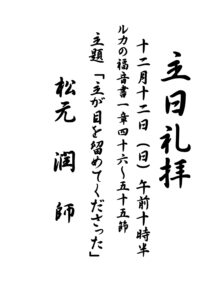 主日礼拝
十二月十二日（日）午前十時半
ルカの福音書一章四十六～五十五節
主題「主が目を留めてくださった」
松元　潤　師